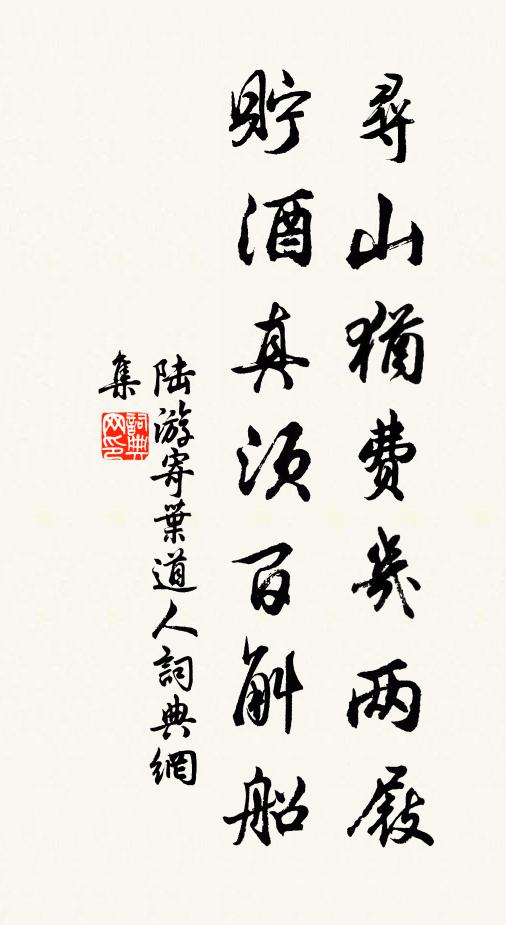 尋山猶費幾兩屐
貯酒真須百斛船
陸游寄葉道人詞典網
集
詞典
网印